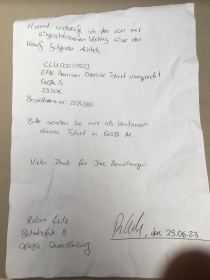 Hiermit widerrufe ich den von mir
abgeschlossenen Vertrag über den
Kauf folgender Artikels
EFN Premium Oversize Tshirt
Größe S
23,00€
Bestellnummer: 2224380
Bitte senden Sie mir als Umtausch
dieses Tshirt in Größe M.
Vielen Dank für Ihre Bemühungen
Robin
Bahnhofstr. 8
06484 Quedlinburg
, den 23.06.23